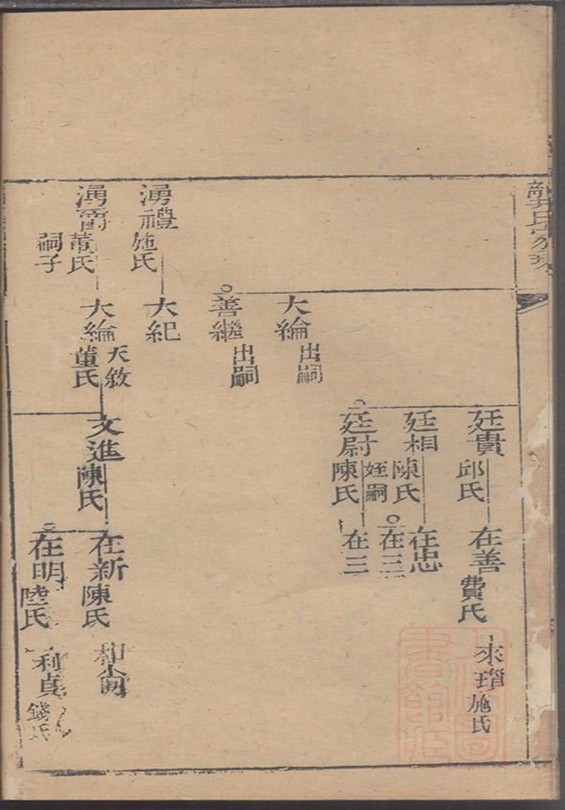 廷貴
邱氏
在善
費氏
來
施氏
廷相
陳氏
姪嗣
在忠
在三
廷尉
陳氏
在三
大綸
出嗣
善繼
出嗣
湧禮
施氏
大紀
湧
董氏
嗣子
大綸
天敘
董氏
文進
陳氏
在新
陳氏
在明
陸氏
利貞
錢氏